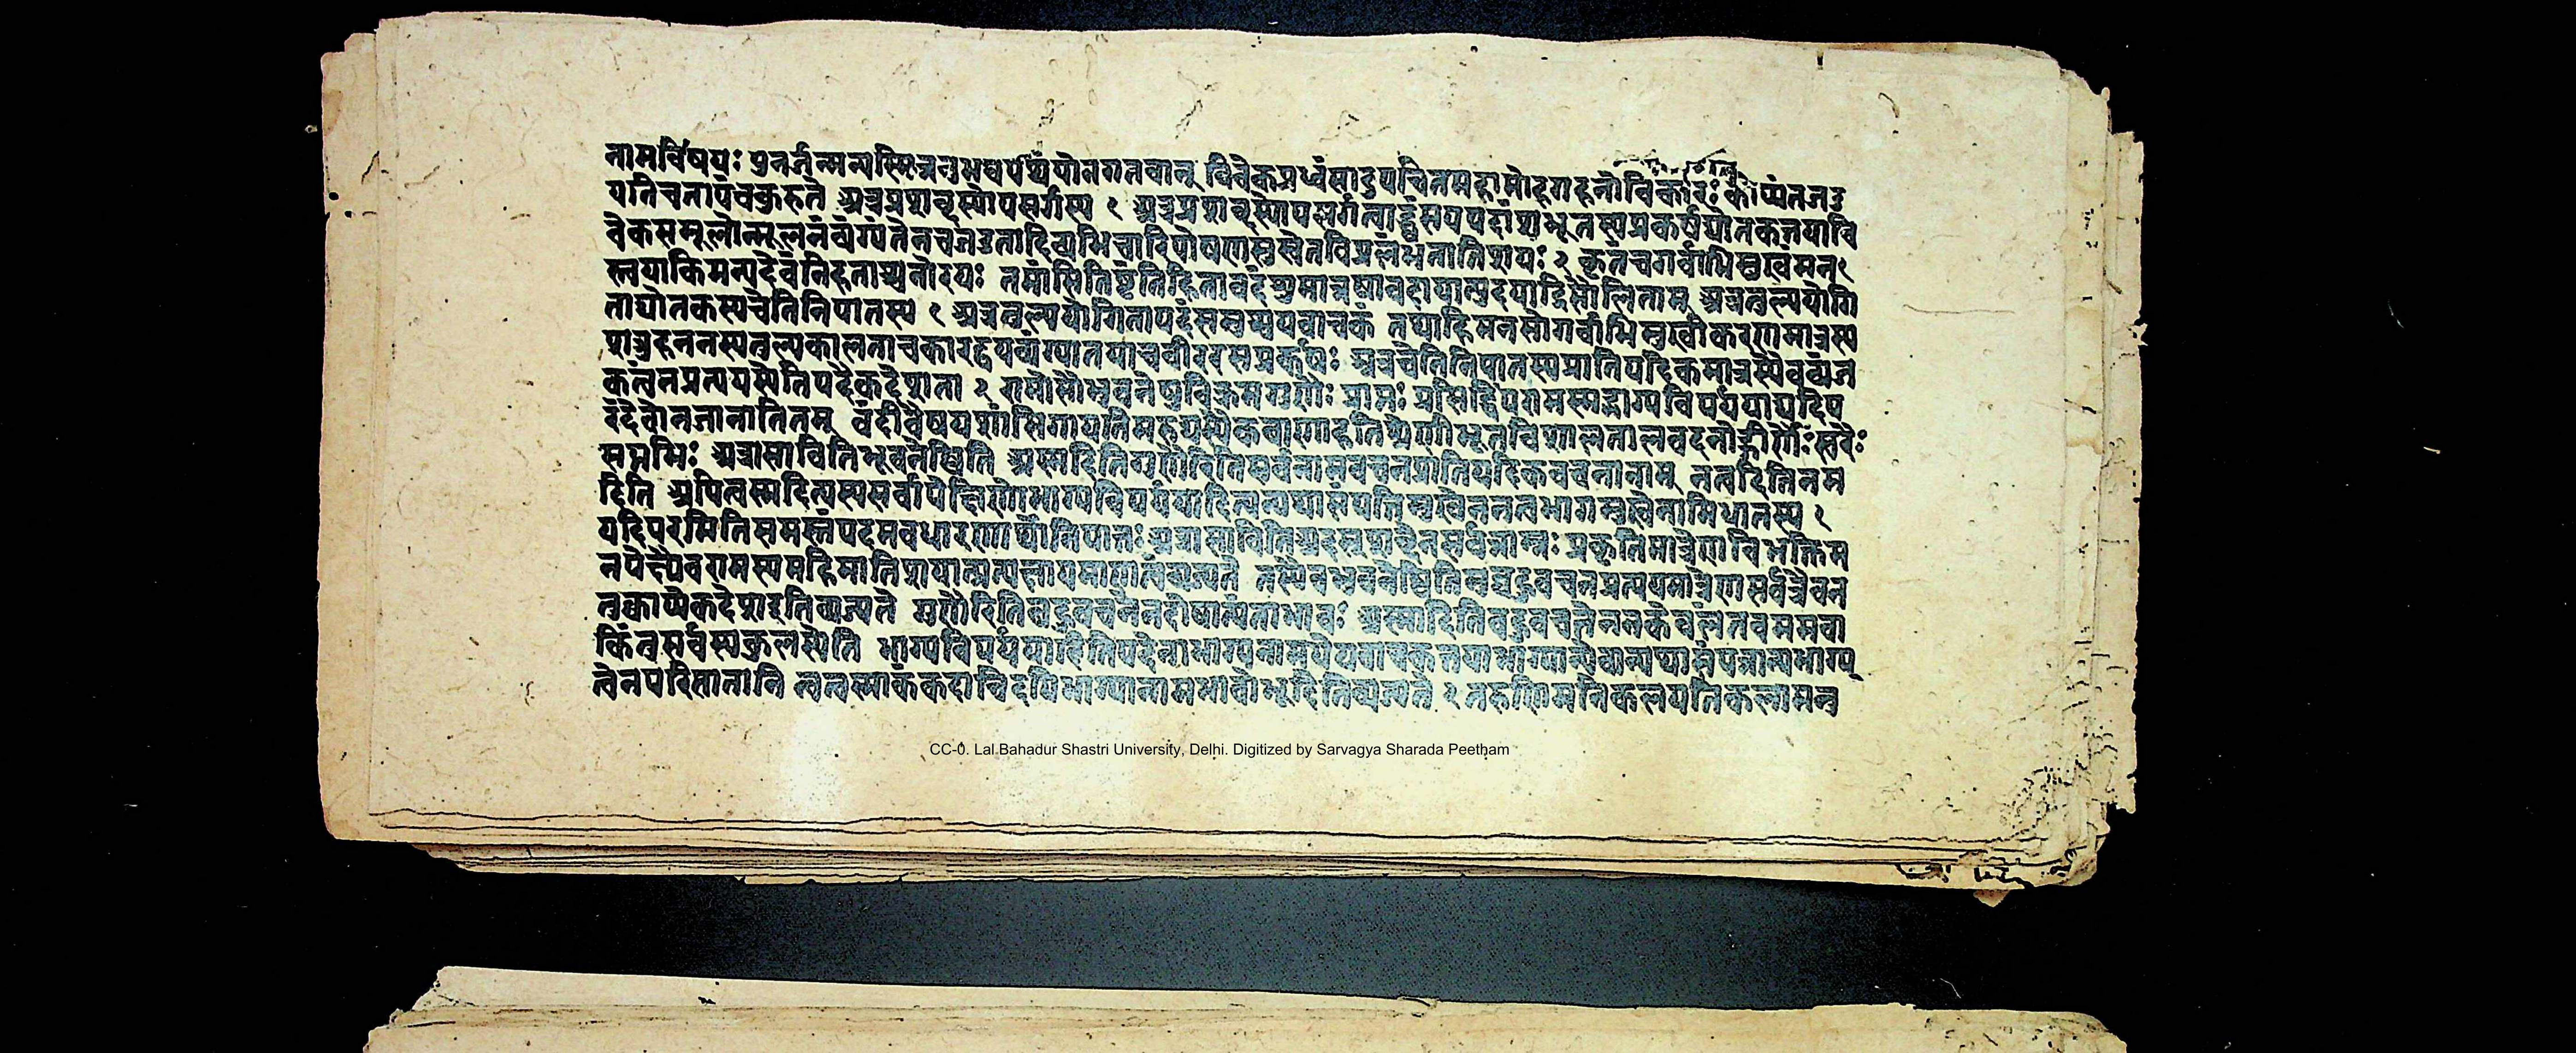 नामविषयः पुनर्जन्मन्यस्मिन्ननुभवपथंयोनगतवान् विवेकप्रध्वंसादुपचितमहामोहगहनोविकारः कोप्यंतर्जड
यतिचतापंचकुरुते अत्रप्रशब्दस्योपसर्गस्य १ अत्रप्रशब्दस्योपसर्गत्वाद्ध्वंसपदपदांशभूतस्यप्रकर्षद्योतकतयावि
वेकसमूलोन्मूलनंव्यंग्यतेनचजडतादिव्यभिचारिपोषणमुखेनविप्रलंभनातिशयः २ कृतंचगर्वाभिमुखंमन
स्त्वयाकिमन्यदेवंनिहताश्चनोरयः तमांसितिष्ठंतिहितावदंशुमान्नयावदायात्युदयाद्रिमौलिताम् अत्रतुल्ययोगि
ताद्योतकस्यचेतिनिपातस्य १ अत्रतुल्ययोगितापदंसमुच्चयवाचकं तथाहिमनसोगर्वाभिमुखीकरणमात्रस्य
शत्रुहननस्यतुल्यकालताचकारद्वयव्यंग्यातयाचवीररसप्रकर्षः अत्रचेतिनिपातस्यप्रातिपदिकमात्रस्यैवव्यंज
कत्वंनप्रत्ययस्येतिपदैकदेशता २ रामोसौभुवनेषुविक्रमगुणैः प्राप्तः प्रसिद्धिंपरामस्मद्भाग्यविपर्ययाद्यदिप
रंदेवोनजानातितम् वंदीवैषयशांसिगायतिमरुद्यस्यैकबाणाहतिश्रेणीभूतविशालतालवदनोद्गीर्णैः स्वरैः
सप्तभिः अत्रासावितिभुवनेष्विति अस्मदितिगुणैरितिसर्वनामवचनप्रातिपदिकवचनानाम् नत्वदितिनम
दिति अपित्वस्मदित्यस्यसर्वापेक्षिणोभाग्यविपर्ययादित्यन्यथासंपत्तिमुखेननत्वभागमुखेनाभिधानस्य १
यदिपरमितिसमस्तंपदमवधारणार्थोनिपातः अत्रासावितिअदस्शब्देनसर्वनाम्नः प्रकृतिमात्रेणविभक्तिम
नपेक्ष्यैवरामस्यमहिमातिशयात्प्रत्यक्षायमाणत्वंव्यज्यते तस्यैवभुवनेष्वितिबहुवचनप्रत्ययमात्रेणसर्वत्रैवन
तुक्वाप्येकदेशइतिव्यज्यते गुणैरितिबहुवचनेनदोषात्यंताभावः अस्मादितिबहुवचनेननकेवलंतवममवा
किंतुसर्वस्यकुलस्येति भाग्यविपर्ययादितिपदेनाभाग्यनामधेयवाचकतयाभाग्यान्येवान्यथासंपन्नान्यभाग्य
त्वेनपरिणतानि नत्वस्माकंकदाचिदपिभाग्यानामभावोभूदितिव्यज्यते २ तरुणिमनिकलयतिकलामनु
CC-0. Lal Bahadur Shastri University, Delhi. Digitized by Sarvagya Sharada Peetham